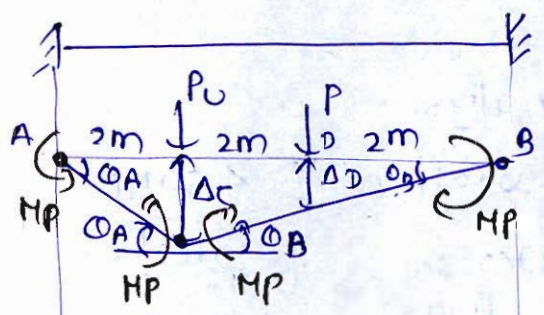 PU P
A 2m 2m D 2m B
θA ΔC ΔD θB
MP θA θB MP
MP MP